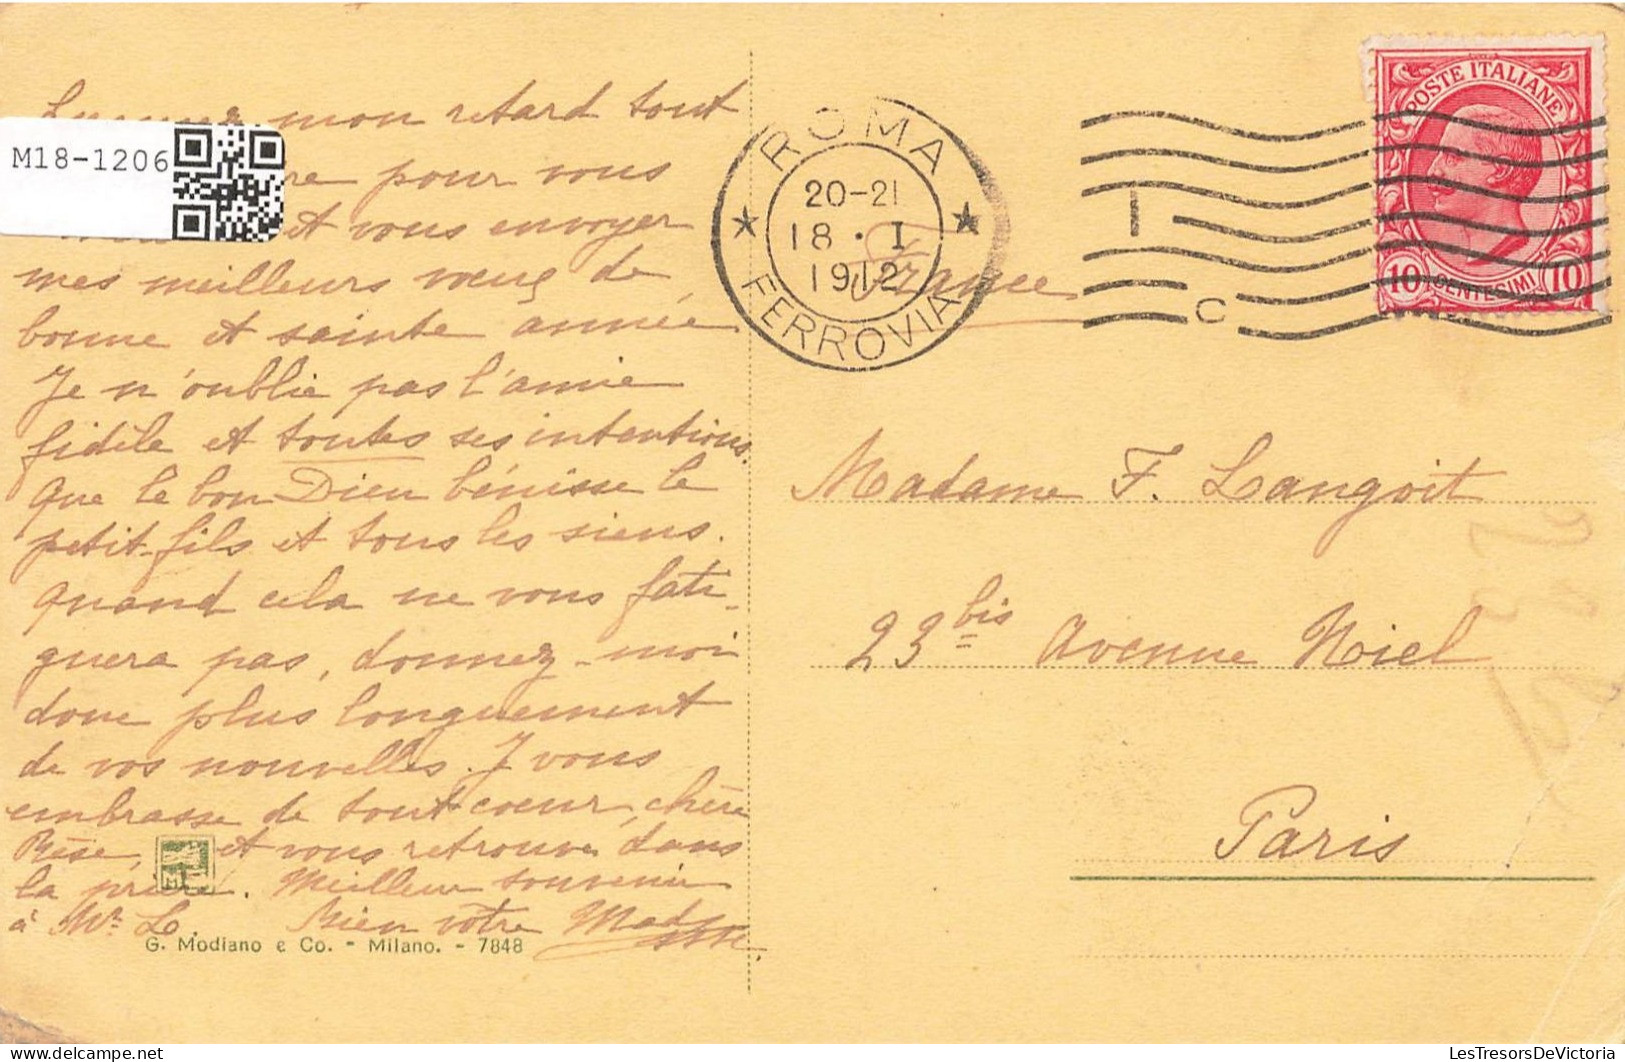 mon retard tout
M18-1206
pour vous
et vous envoyer
mes meilleurs vœux de
bonne et sainte année
Je n'oublie pas l'amie
fidèle et toutes ses intentions.
Que le bon Dieu bénisse le
petit-fils et tous les siens.
Quand cela ne vous fati-
guera pas, donnez-moi
donc plus longuement
de vos nouvelles. J vous
embrasse de tout cœur, chère
et vous retrouve dans
la prière. Meilleur souvenir
à Mr L. Bien vôtre
G. Modiano e Co. - Milano. - 7848
ROMA
20-21
18 · I
1912
FERROVIA
I
C
POSTE ITALIANE
10 CENTESIMI 10
France
Madame F. Langoit
23 bis Avenue Niel
Paris
LesTresorsDeVictoria